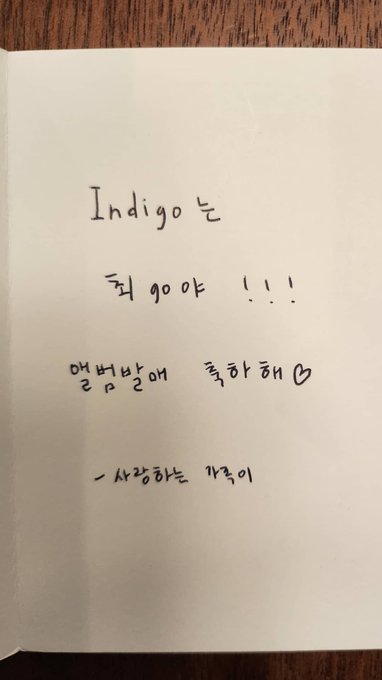 Indigo는
최go야 !!!
앨범발매 축하해♡
- 사랑하는 가족이